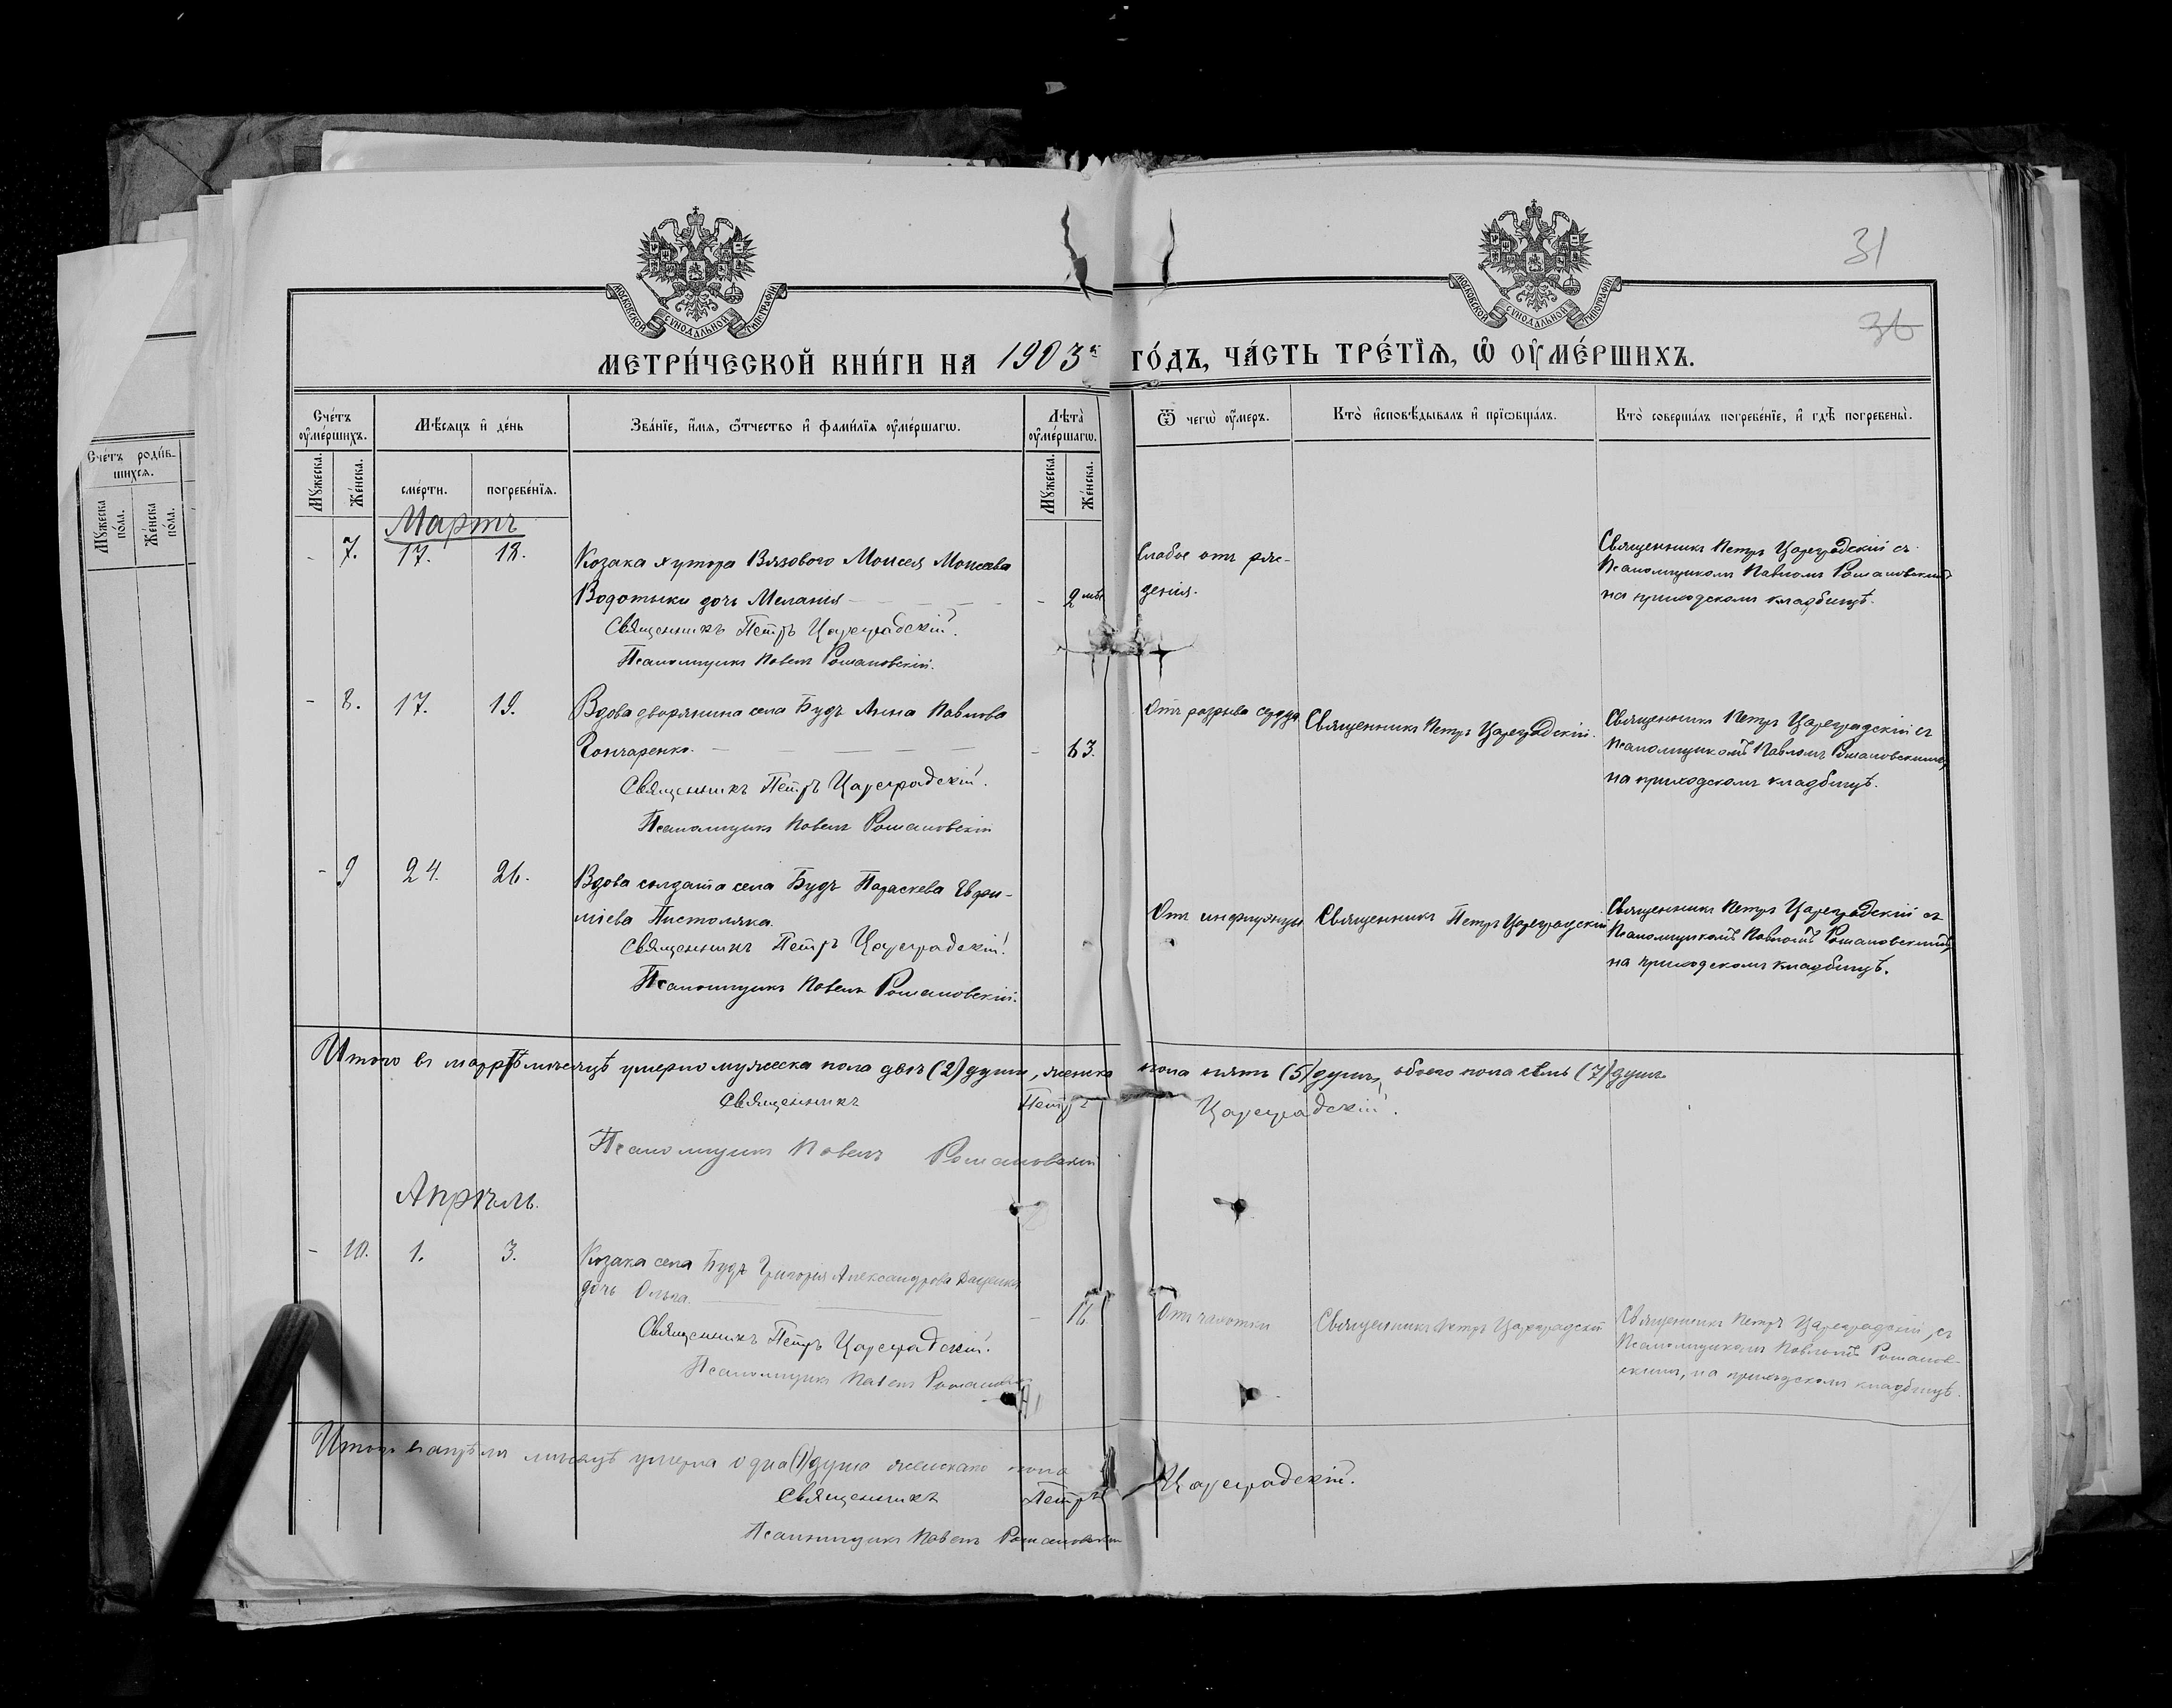 31
36
МОСКОВСКОЙ СѴНОДАЛЬНОЙ ТИПОГРАФІИ
МОСКОВСКОЙ СѴНОДАЛЬНОЙ ТИПОГРАФІИ
МЕТРИ́ЧЕСКОЙ КНИ́ГИ НА 1903й ГО́ДЪ, ЧА́СТЬ ТРЕ́ТІѦ, Ѡ ОУ҆МЕ́РШИХЪ.
Сче́тъ роди́в-
шихсѧ.
Мꙋжеска по́ла.
Же́нска по́ла.
Сче́тъ оу҆ме́ршихъ.
Мѣ́сѧцъ и҆ де́нь
Зва́нїе, и҆́мѧ, ѻ҆́тчество и҆ фами́лїѧ оу҆ме́ршагѡ.
Лѣ́та оу҆ме́ршагѡ.
Ѿ чегѡ̀ оу҆́меръ.
Кто̀ и҆сповѣ́дывалъ и҆ прїѡбща́лъ.
Кто̀ соверша́лъ погребе́нїе, и҆ гдѣ̀ погребены̀.
Мꙋ́жеска.
Же́нска.
сме́рти.
погребе́нїѧ.
Мꙋ́жеска.
Же́нска.
Мартъ
- 7. 17. 18.
Козака хутора Вязового Моисея Моисеева
Водотыки дочь Меланія
- 2 мѣс
Священникъ Петръ Цареградскій.
Псаломщикъ Павелъ Романовскій.
Слабое отъ рож-
денія.
Священникъ Петръ Цареградскій съ
Псаломщикомъ Павломъ Романовскимъ
на приходскомъ кладбищѣ.
- 8. 17. 19.
Вдова дворянина села Будъ Анна Павлова
Гончаренко.
- 63.
Священникъ Петръ Цареградскій.
Псаломщикъ Павелъ Романовскій
Отъ разрыва сердца
Священникъ Петръ Цареградскій.
Священникъ Петръ Цареградскій съ
Псаломщикомъ Павломъ Романовскимъ,
на приходскомъ кладбищѣ.
- 9 24. 26.
Вдова солдата села Будъ Параскева Евфи-
міева Пистоляка.
Священникъ Петръ Цареградскій.
Псаломщикъ Павелъ Романовскій.
Отъ инфлуэнцы
Священникъ Петръ Цареградскій
Священникъ Петръ Цареградскій съ
Псаломщикомъ Павломъ Романовскимъ,
на приходскомъ кладбищѣ.
Итого въ мартѣ мѣсяцѣ умерло мужеска пола двѣ (2) души, женска пола пять (5) душъ, обоего пола семь (7) душъ.
Священникъ Петръ Цареградскій.
Псаломщикъ Павелъ Романовскій
Апрѣль.
- 10. 1. 3.
Козака села Будъ Григорія Александрова Даценка
дочь Ольга.
- 16.
Священникъ Петръ Цареградскій.
Псаломщикъ Павелъ Романовскій
Отъ чахотки
Священникъ Петръ Цареградскій
Священникъ Петръ Цареградскій, съ
Псаломщикомъ Павломъ Романов-
скимъ, на приходскомъ кладбищѣ.
Итого въ апрѣлѣ мѣсяцѣ умерла одна (1) душа женскаго пола
Священникъ Петръ Цареградскій.
Псаломщикъ Павелъ Романовскій